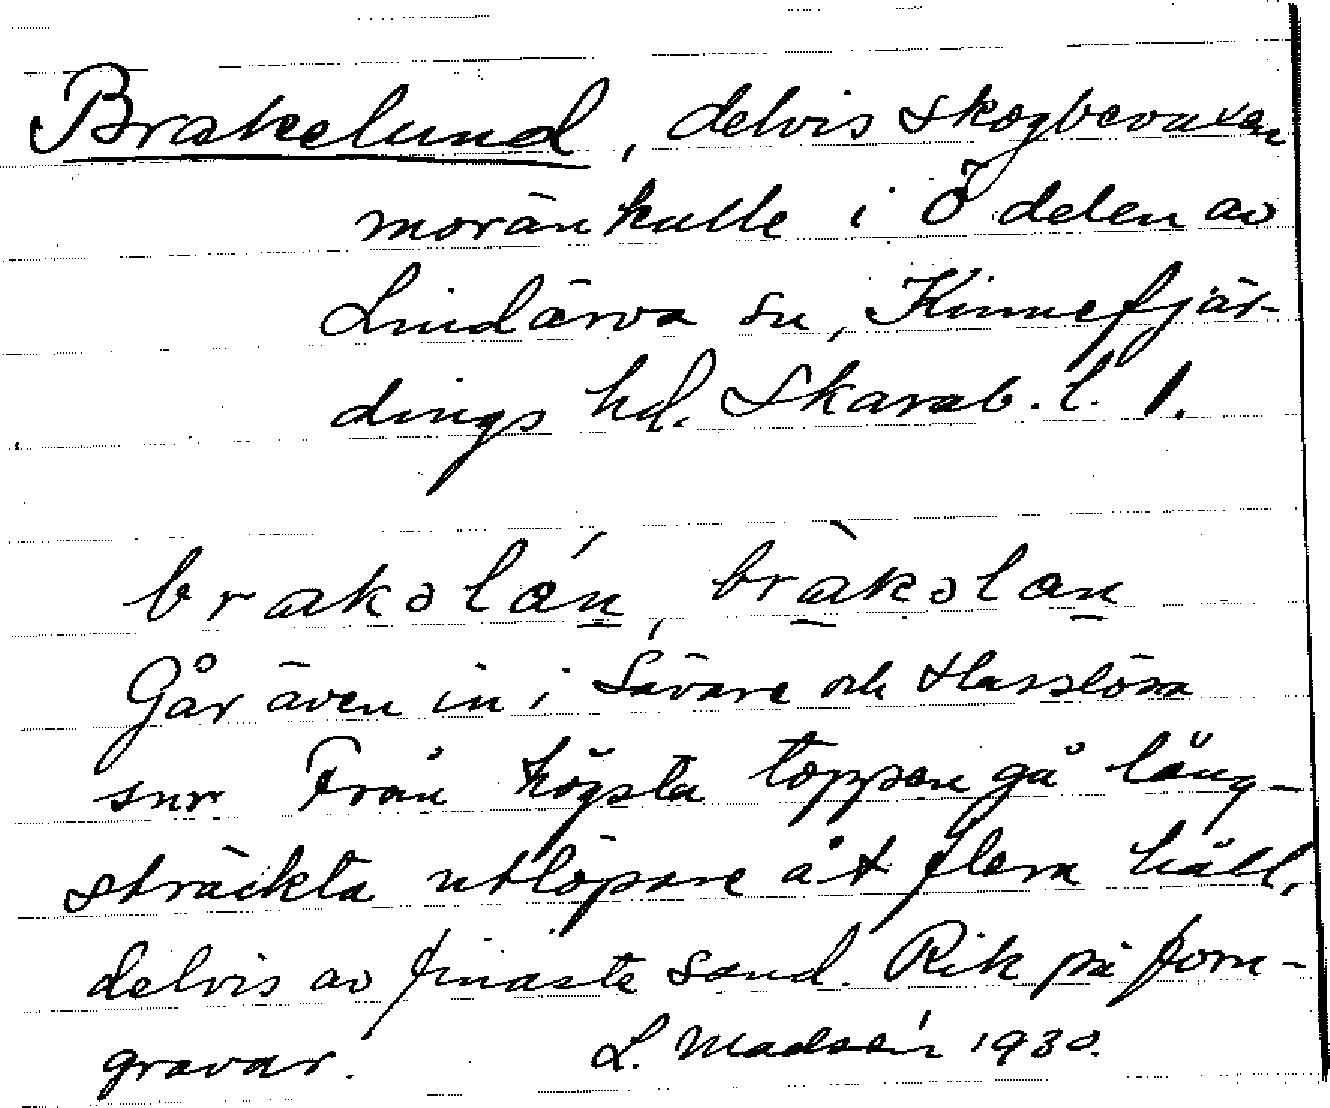 Brakelund, delvis skogbevuxen
moränkulle i Ö delen av
Lindärva sn, Kinnefjär-
dings hd. Skarab. l. 1.
brakəlǽn, bràkəlæn
Går även in i Sävare och Hasslösa
snr Från högsta toppen gå lång-
sträckta utlöpare åt flera håll,
delvis av finaste sand. Rik på forn-
gravar. L. Madsén 1930.